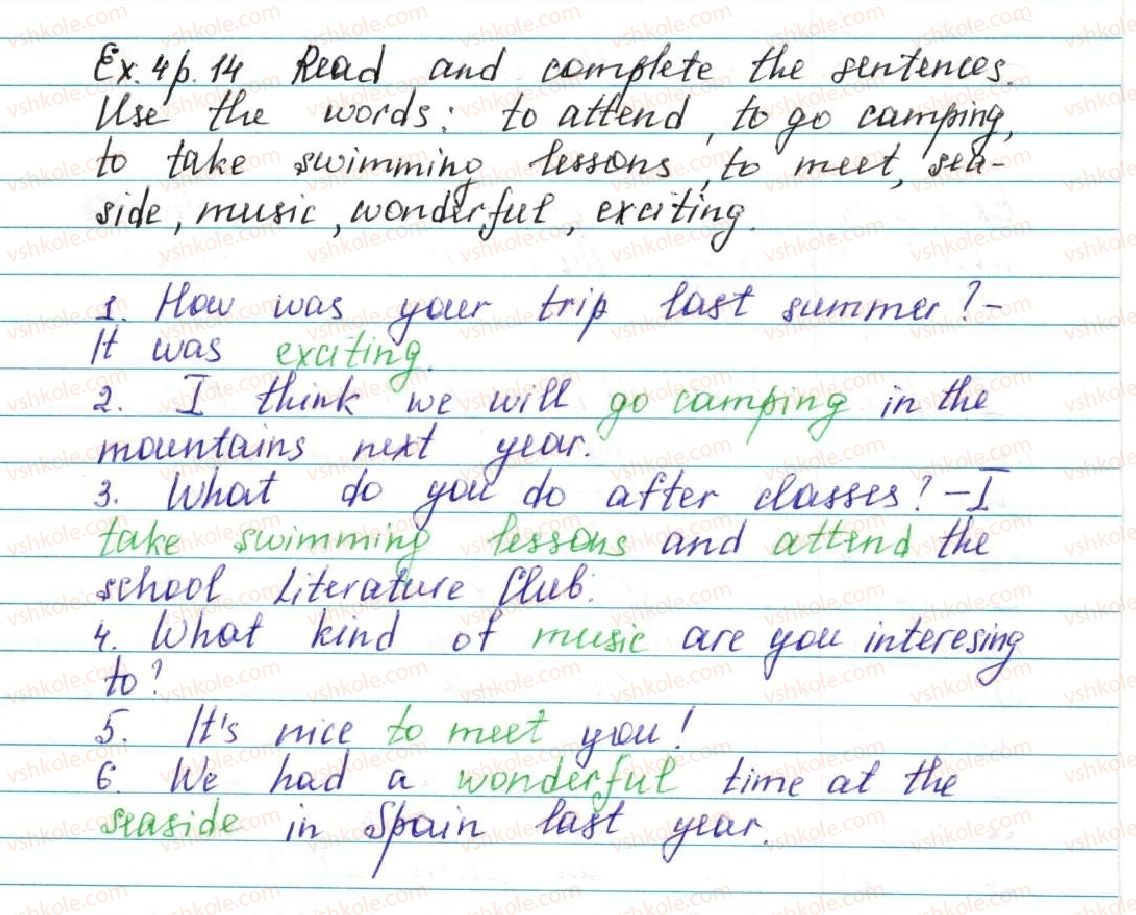 Ex. 4 p. 14 Read and complete the sentences.
Use the words: to attend, to go camping,
to take swimming lessons, to meet, sea-
side, music, wonderful, exciting.
1. How was your trip last summer? -
It was exciting.
2. I think we will go camping in the
mountains next year.
3. What do you do after classes? - I
take swimming lessons and attend the
school Literature Club.
4. What kind of music are you interesing
to?
5. It's nice to meet you!
6. We had a wonderful time at the
seaside in Spain last year.
vshkole.com